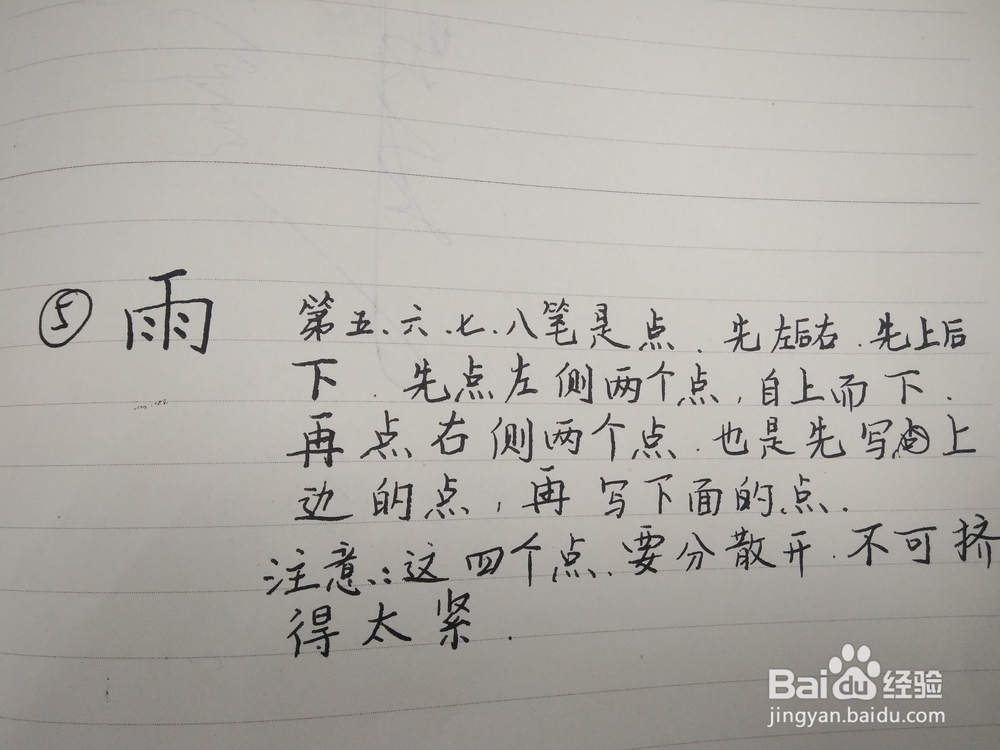 ⑤ 雨 第五、六、七、八笔是点.先左后右.先上后
下.先点左侧两个点,自上而下.
再点右侧两个点.也是先写上
边的点,再写下面的点.
注意:这四个点.要分散开.不可挤
得太紧.
Baidu经验
jingyan.baidu.com